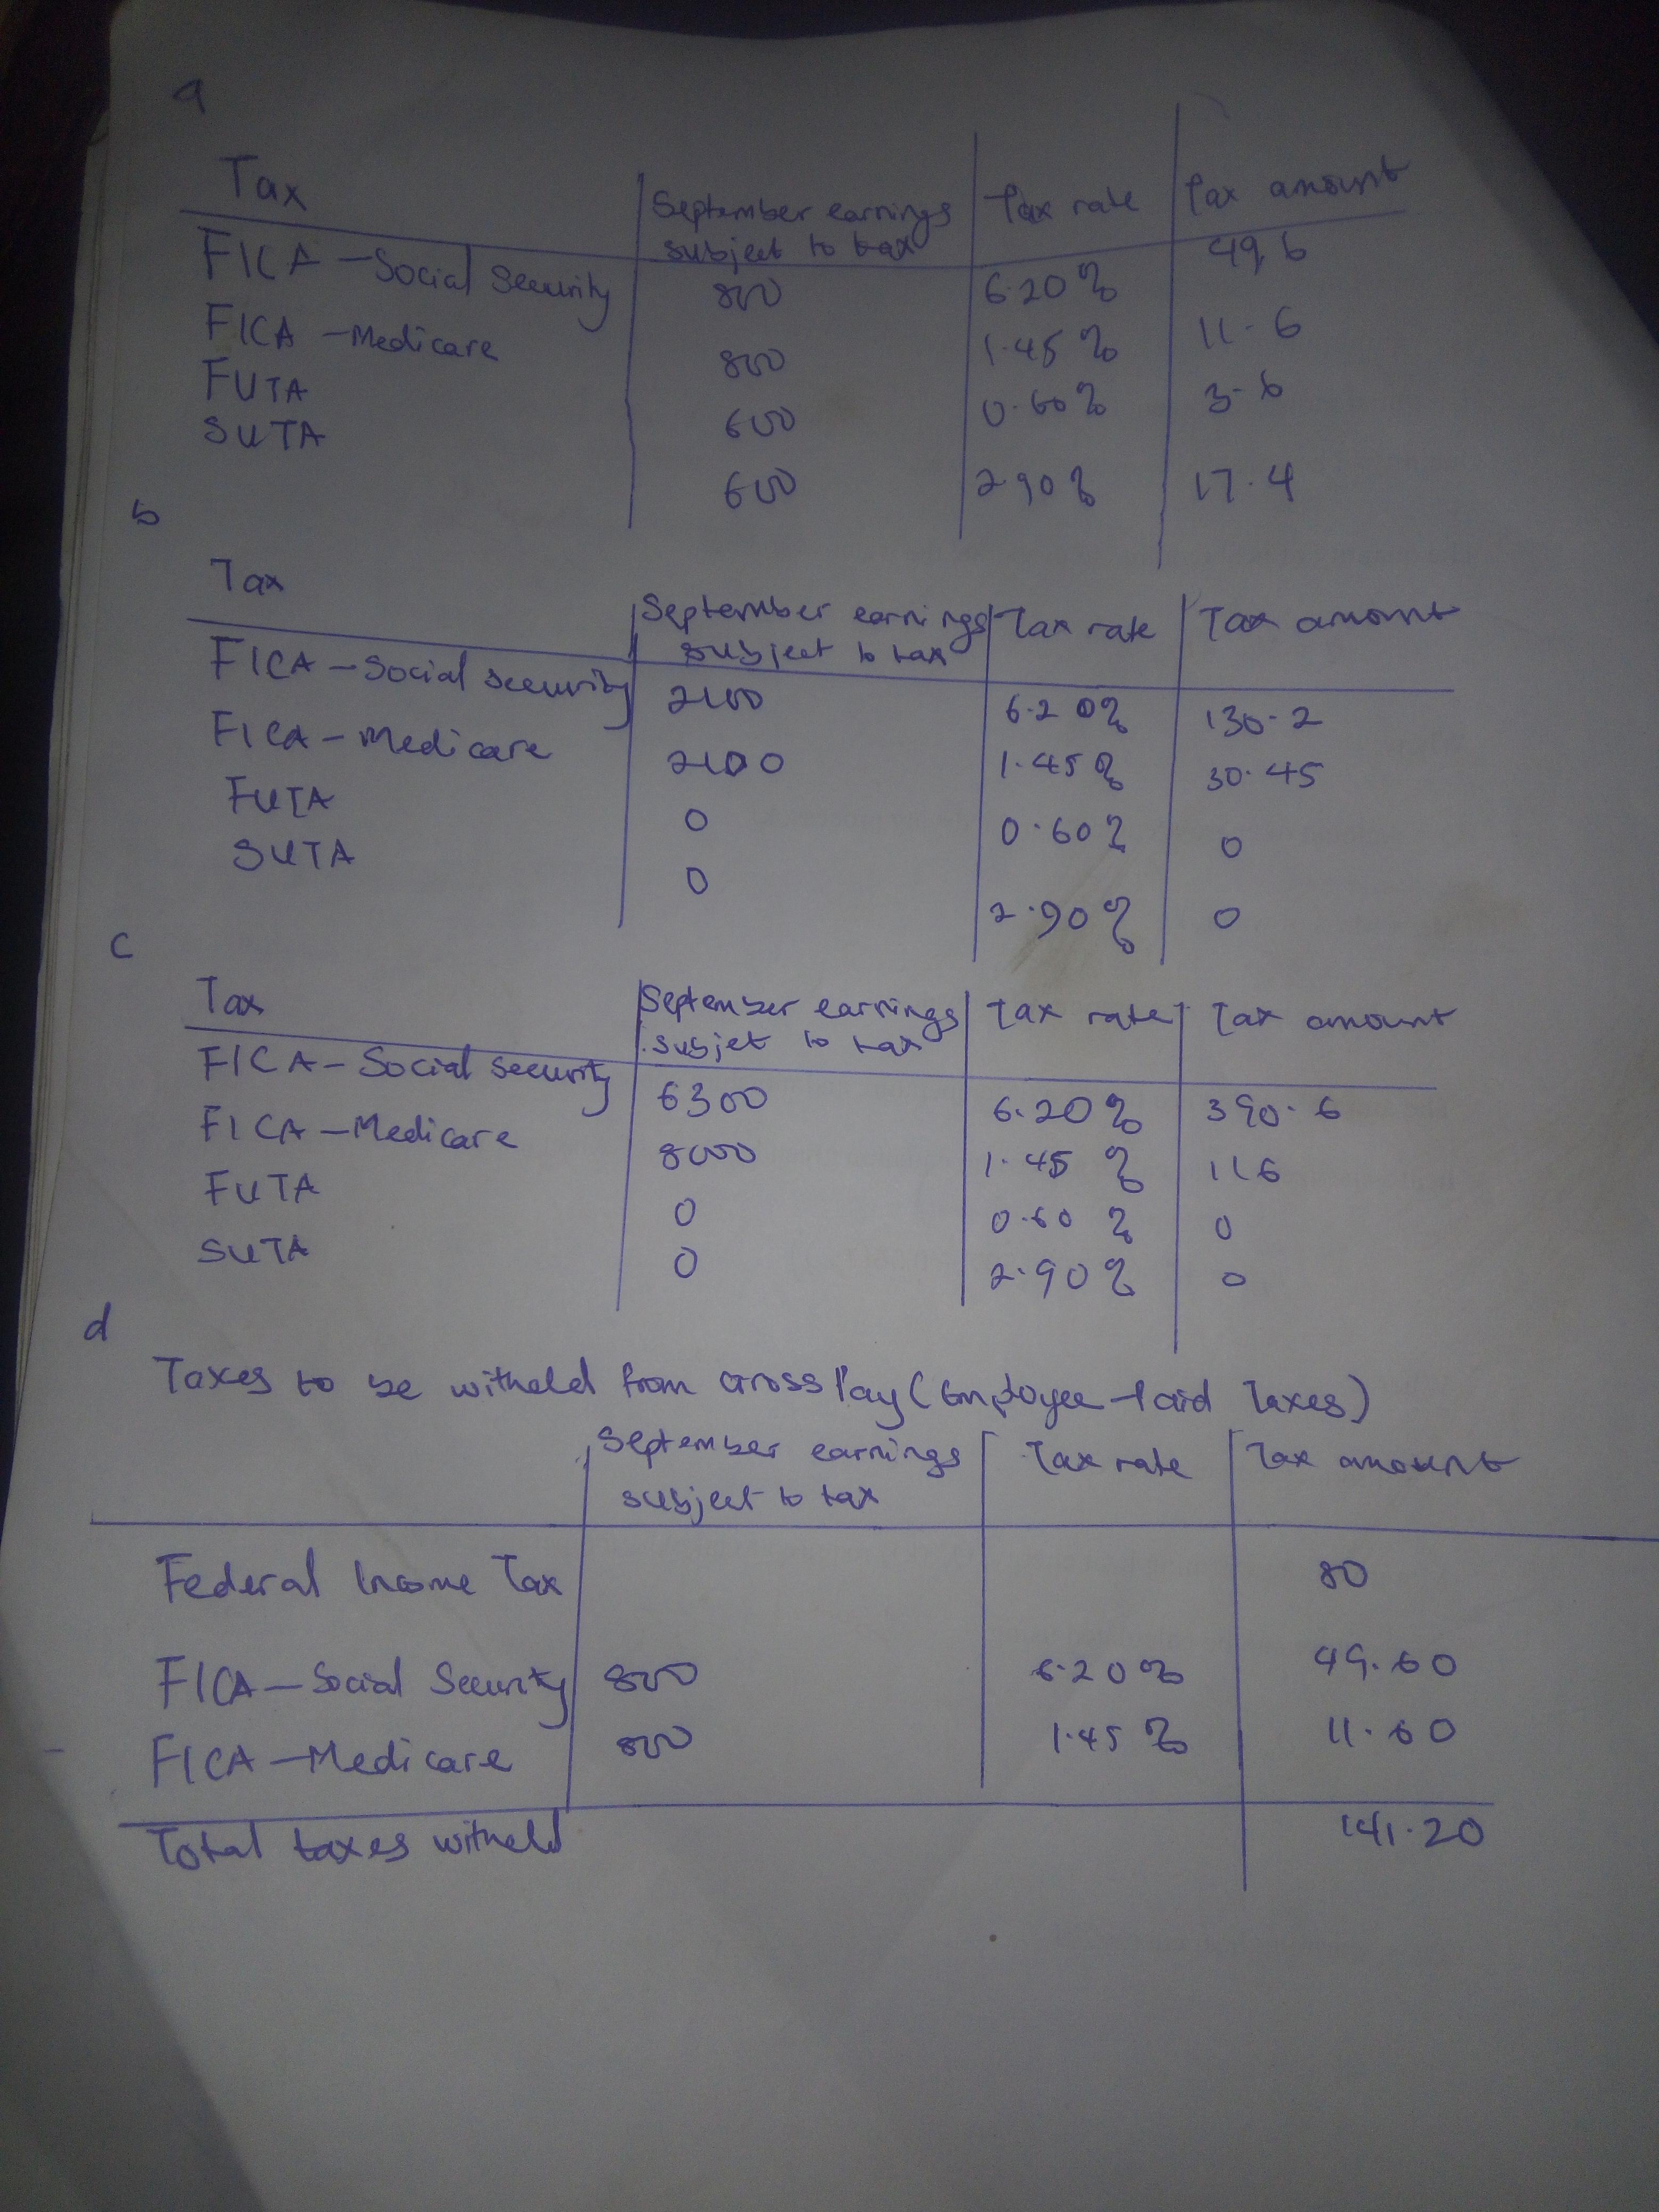 a
Tax | September earnings subject to tax | Tax rate | Tax amount
FICA - Social Security | 800 | 6.20% | 49.6
FICA - Medicare | 800 | 1.45% | 11.6
FUTA | 600 | 0.60% | 3.6
SUTA | 600 | 2.90% | 17.4
b
Tax | September earnings subject to tax | Tax rate | Tax amount
FICA - Social security | 2100 | 6.20% | 130.2
FICA - Medicare | 2100 | 1.45% | 30.45
FUTA | 0 | 0.60% | 0
SUTA | 0 | 2.90% | 0
c
Tax | September earnings subjet to tax | Tax rate | Tax amount
FICA - Social security | 6300 | 6.20% | 390.6
FICA - Medicare | 8000 | 1.45% | 116
FUTA | 0 | 0.60% | 0
SUTA | 0 | 2.90% | 0
d
Taxes to be witheld from Gross Pay (Employee-Paid Taxes)
September earnings subject to tax | Tax rate | Tax amount
Federal Income Tax | 80
FICA - Social Security | 800 | 6.20% | 49.60
FICA - Medicare | 800 | 1.45% | 11.60
Total taxes witheld | 141.20